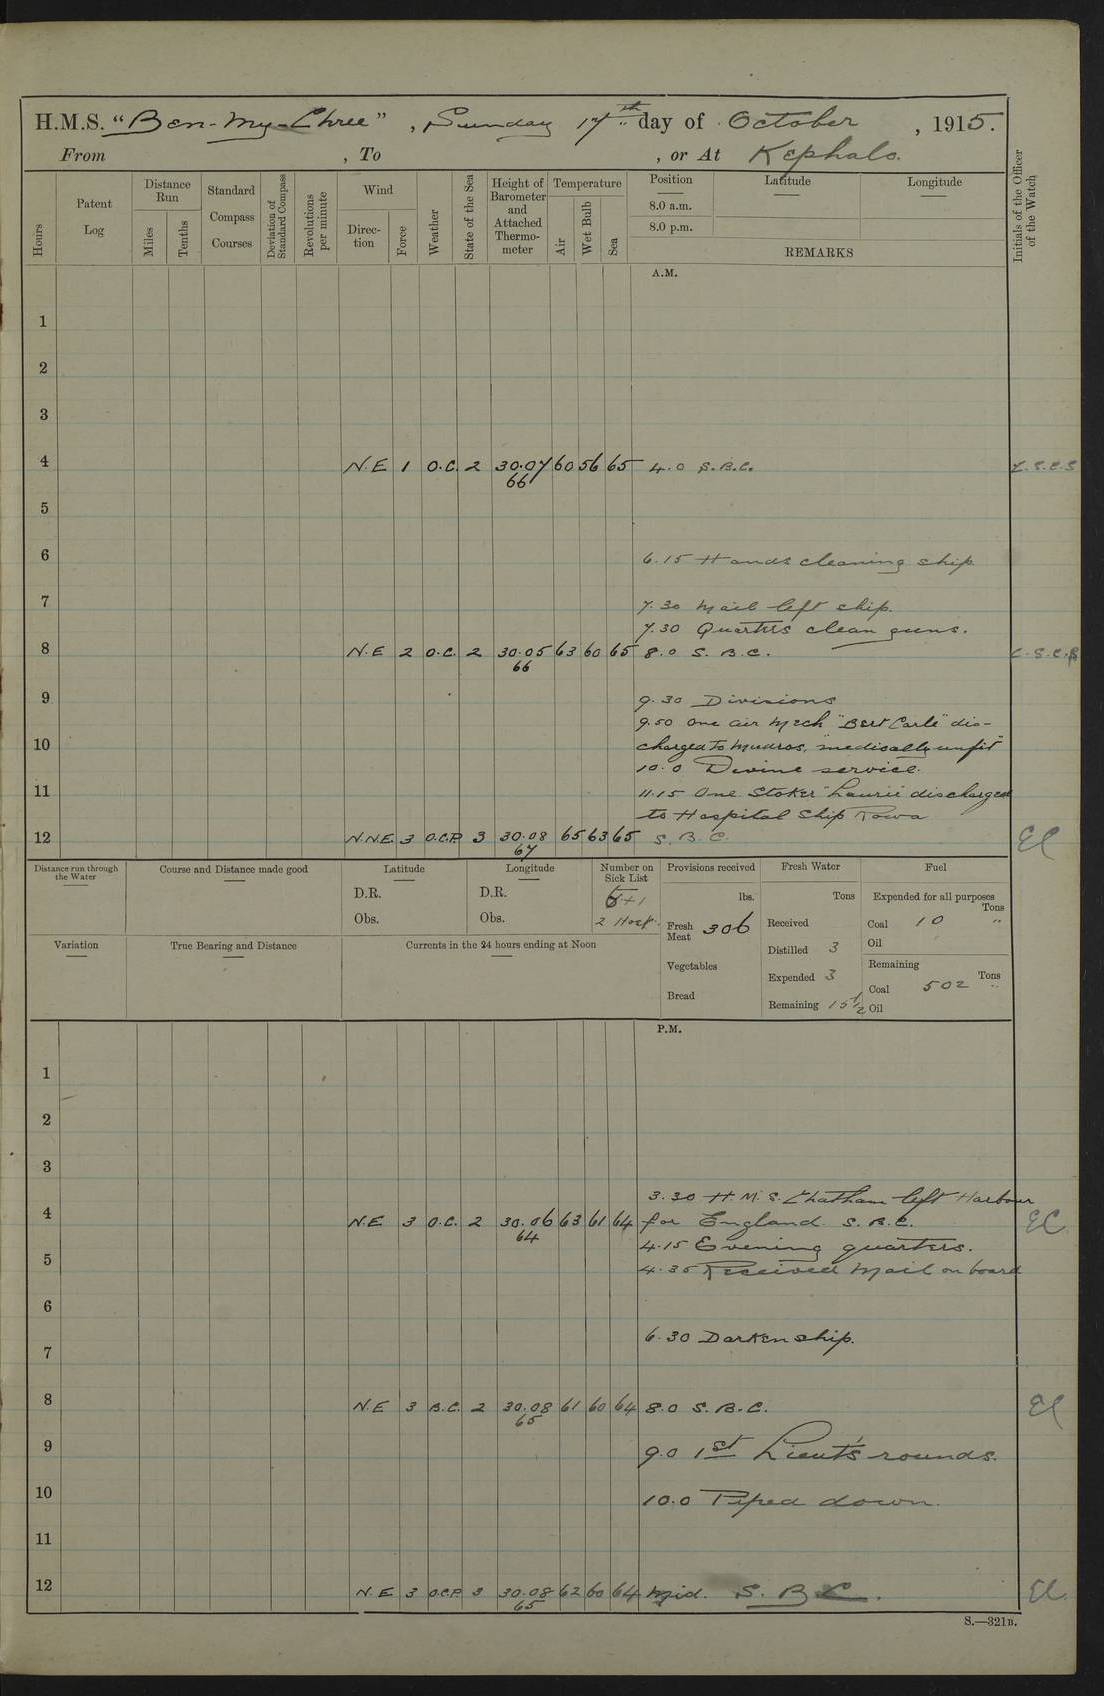 H.M.S. "Ben-My-Chree", Sunday 17th day of October, 1915.
From , To , or At Kephalo.
Hours
Patent Log
Distance Run
Miles
Tenths
Standard Compass Courses
Deviation of Standard Compass
Revolutions per minute
Wind
Direction
Force
Weather
State of the Sea
Height of Barometer and Attached Thermometer
Temperature
Air
Wet Bulb
Sea
Position
8.0 a.m.
8.0 p.m.
Latitude
Longitude
REMARKS
Initials of the Officer of the Watch
A.M.
1
2
3
4 N.E 1 O.C. 2 30.07 60 56 65 4.0 S.B.C.
66
5
6
6.15 Hands cleaning ship
7
7.30 Mail left ship.
7.30 Quarters clean guns.
8 N.E 2 O.C. 2 30.05 63 60 65 8.0 S.B.C.
66
9
9.30 Divisions
9.50 One air Mech "Bert Carle" dis-
10 charged to Mudros, "medically unfit"
10.0 Divine service.
11 11.15 One Stoker "Laurie" discharged
to Hospital Ship
12 N.N.E 3 O.C.P. 3 30.08 65 63 65 S.B.C. EC
67
Distance run through the Water
Course and Distance made good
Latitude
D.R.
Obs.
Longitude
D.R.
Obs.
Number on Sick List
+1
2 Hosp.
Provisions received
lbs.
Fresh Meat 306
Vegetables
Bread
Fresh Water
Tons
Received
Distilled 3
Expended 3
Remaining 151/2
Fuel
Expended for all purposes
Tons
Coal 10 "
Oil
Remaining
Tons
Coal 502 "
Oil
Variation
True Bearing and Distance
Currents in the 24 hours ending at Noon
P.M.
1
2
3
3.30 H.M.S. Chatham left Harbour
4 N.E 3 O.C. 2 30.06 63 61 64 for England. S.B.C. EC
64
4.15 Evening quarters.
5 4.35 Received Mail on board
6
6.30 Darken ship.
7
8 N.E 3 B.C. 2 30.08 61 60 64 8.0 S.B.C. EC
65
9 9.0 1st Lieut's rounds.
10 10.0 Piped down.
11
12 N.E 3 O.C.P. 3 30.08 62 60 64 Mid. S.B.C. EC
65
S.—321B.